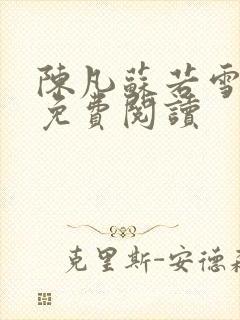 陳凡蘇若雪
免費閱讀
克里斯-安德森